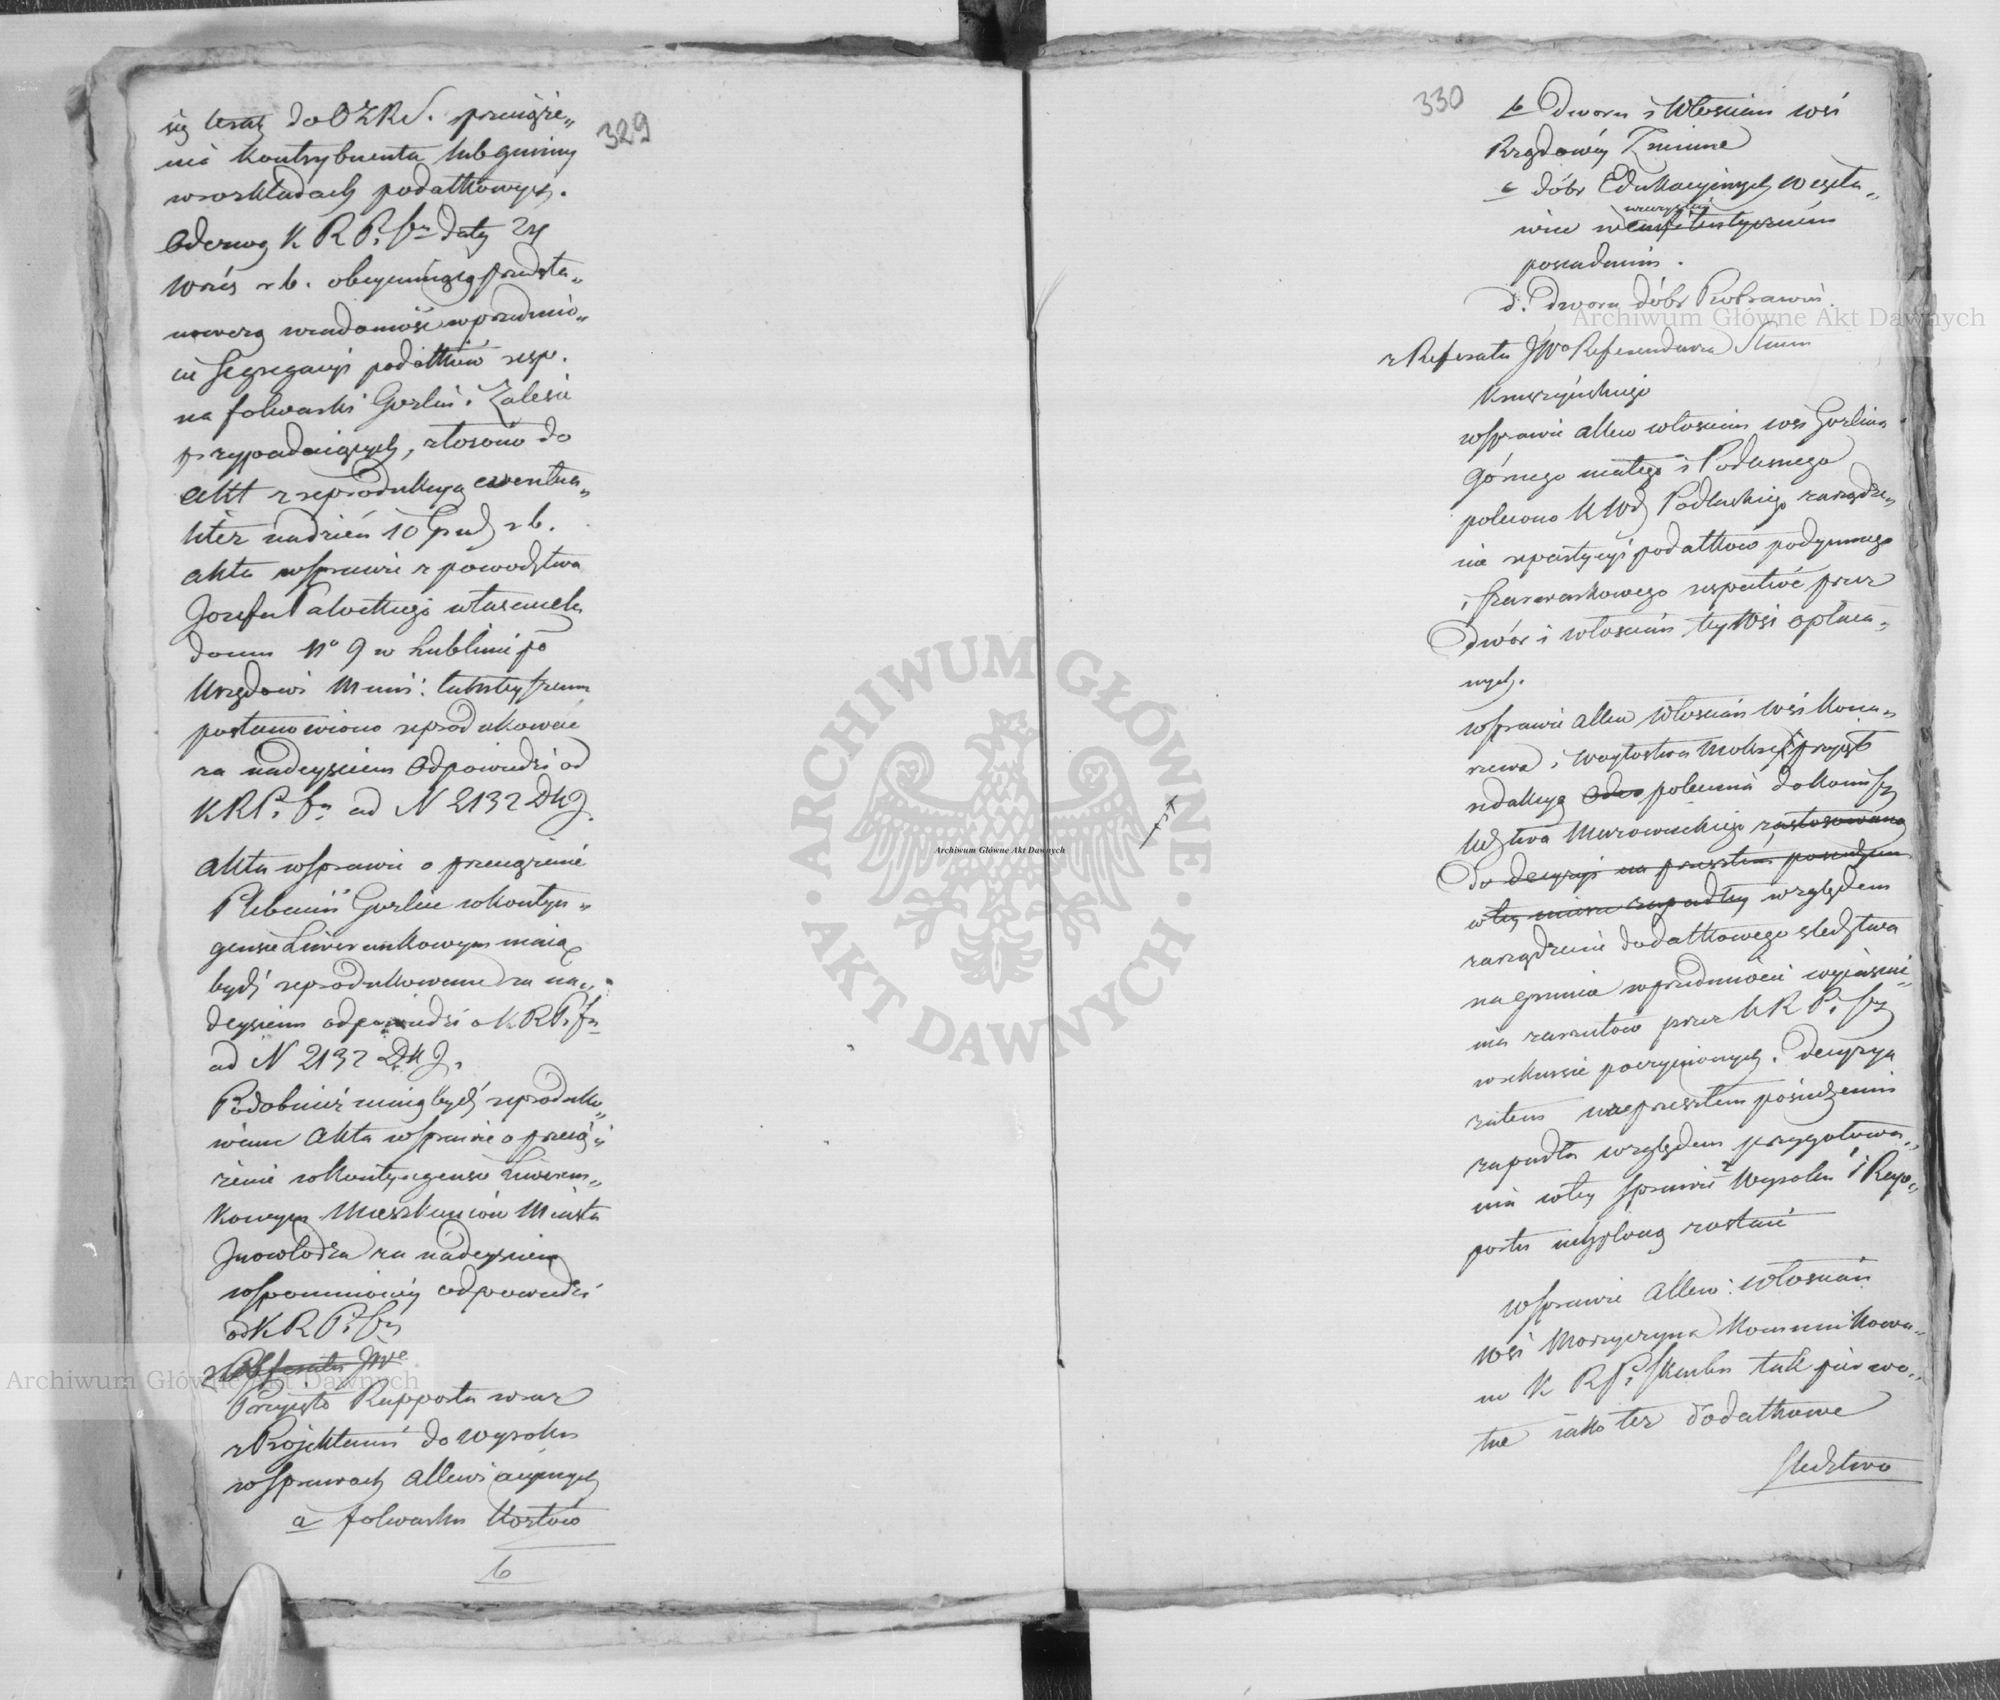 329
się teraz do OZRS. przeciąże„
nia kontrybuenta lub gminy
w rozkładach podatkowych.
Odezwę K R P. i Su daty 24
Wrześ r b. obeymuiącą przedsta„
wiadomość w przedmio„
cie segregacyi podatków resp.
na folwarki Gorlin i Zalesie
przypadaiących, złożono do
akt z reprodukcyą eventua„
liter na dzień 10 Grud r b.
Akta w sprawie z powodztwa
Jozefa właściciela
domu No 9 w Lublinie po
Urzędowi Muni:
postanowiono reprodukować
za nadeyściem odpowiedzi od
KRP. i Su ad N 2132 DKJ.
Akta w sprawie o przeciążenie
Plebanii Gorlin w kontyn„
gensie Liwerunkowym maią
bydź reprodukowane za na„
deyściem odpowiedzi o KRP. i Su
ad N 2132 DKJ.
Podobnież maią bydź reproduko„
wane Akta w sprawie o przecią„
żenie w kontyngensie Liwerun„
kowym Mieszkańców Miasta
Inowłodza za nadeyściem
wspomnioney odpowiedzi
od K R P. i Su
z Referatu JWo
Przyięto Rapporta wraz
z Projektami do wyroku
w sprawach allewiacyinych
a folwarku Kozłów
b
330
b Dworu i Włościan wsi
Rządowéy Zminne
c dóbr Edukacyinych
wieczystém
wice w emfiteutycznem
posiadaniu.
d. Dworu dóbr Piotrawin.
z Referatu JWo Referendarza Stanu
Kruszyńskiego
w sprawie allew włościan wsi Gorlina
Górnego małego i Podlesnego
polecono K Wdz Podlaskiego zarządze„
nie repartycyi podatków podymnego
i szarwarkowego respective przez
Dwór i włościan tey Wsi opłaca„
nych.
w sprawie allew Włościan wsi Kona„
rzewa i Woytostwa Mokre przyięto
redakcyą Odez polecenia do Kommiss
zastosowaną
do decyzyi na przeszłem posiedzeniu
w tey mierze zapadłey względem
zarządzenia dodatkowego sledztwa
na gruncie w przedmiocie wyiaśnie„
nia zarzutów przez K R P. i Su
w rekursie poczynionych. Decyzya
zatem na przeszłem posiedzeniu
zapadła względem przygotowa„
nia w tey sprawie Wyroku i Rap„
portu uchyloną zostaie
w sprawie Allew: Włościan
wsi Morzyczyna Kommunikowa„
ne K R P. i Skarbu tak pierwo„
tne iako też dodatkowe
sledztwo
Archiwum Główne Akt Dawnych
Archiwum Główne Akt Dawnych
Archiwum Główne Akt Dawnych
ARCHIWUM GŁÓWNE · AKT DAWNYCH ·